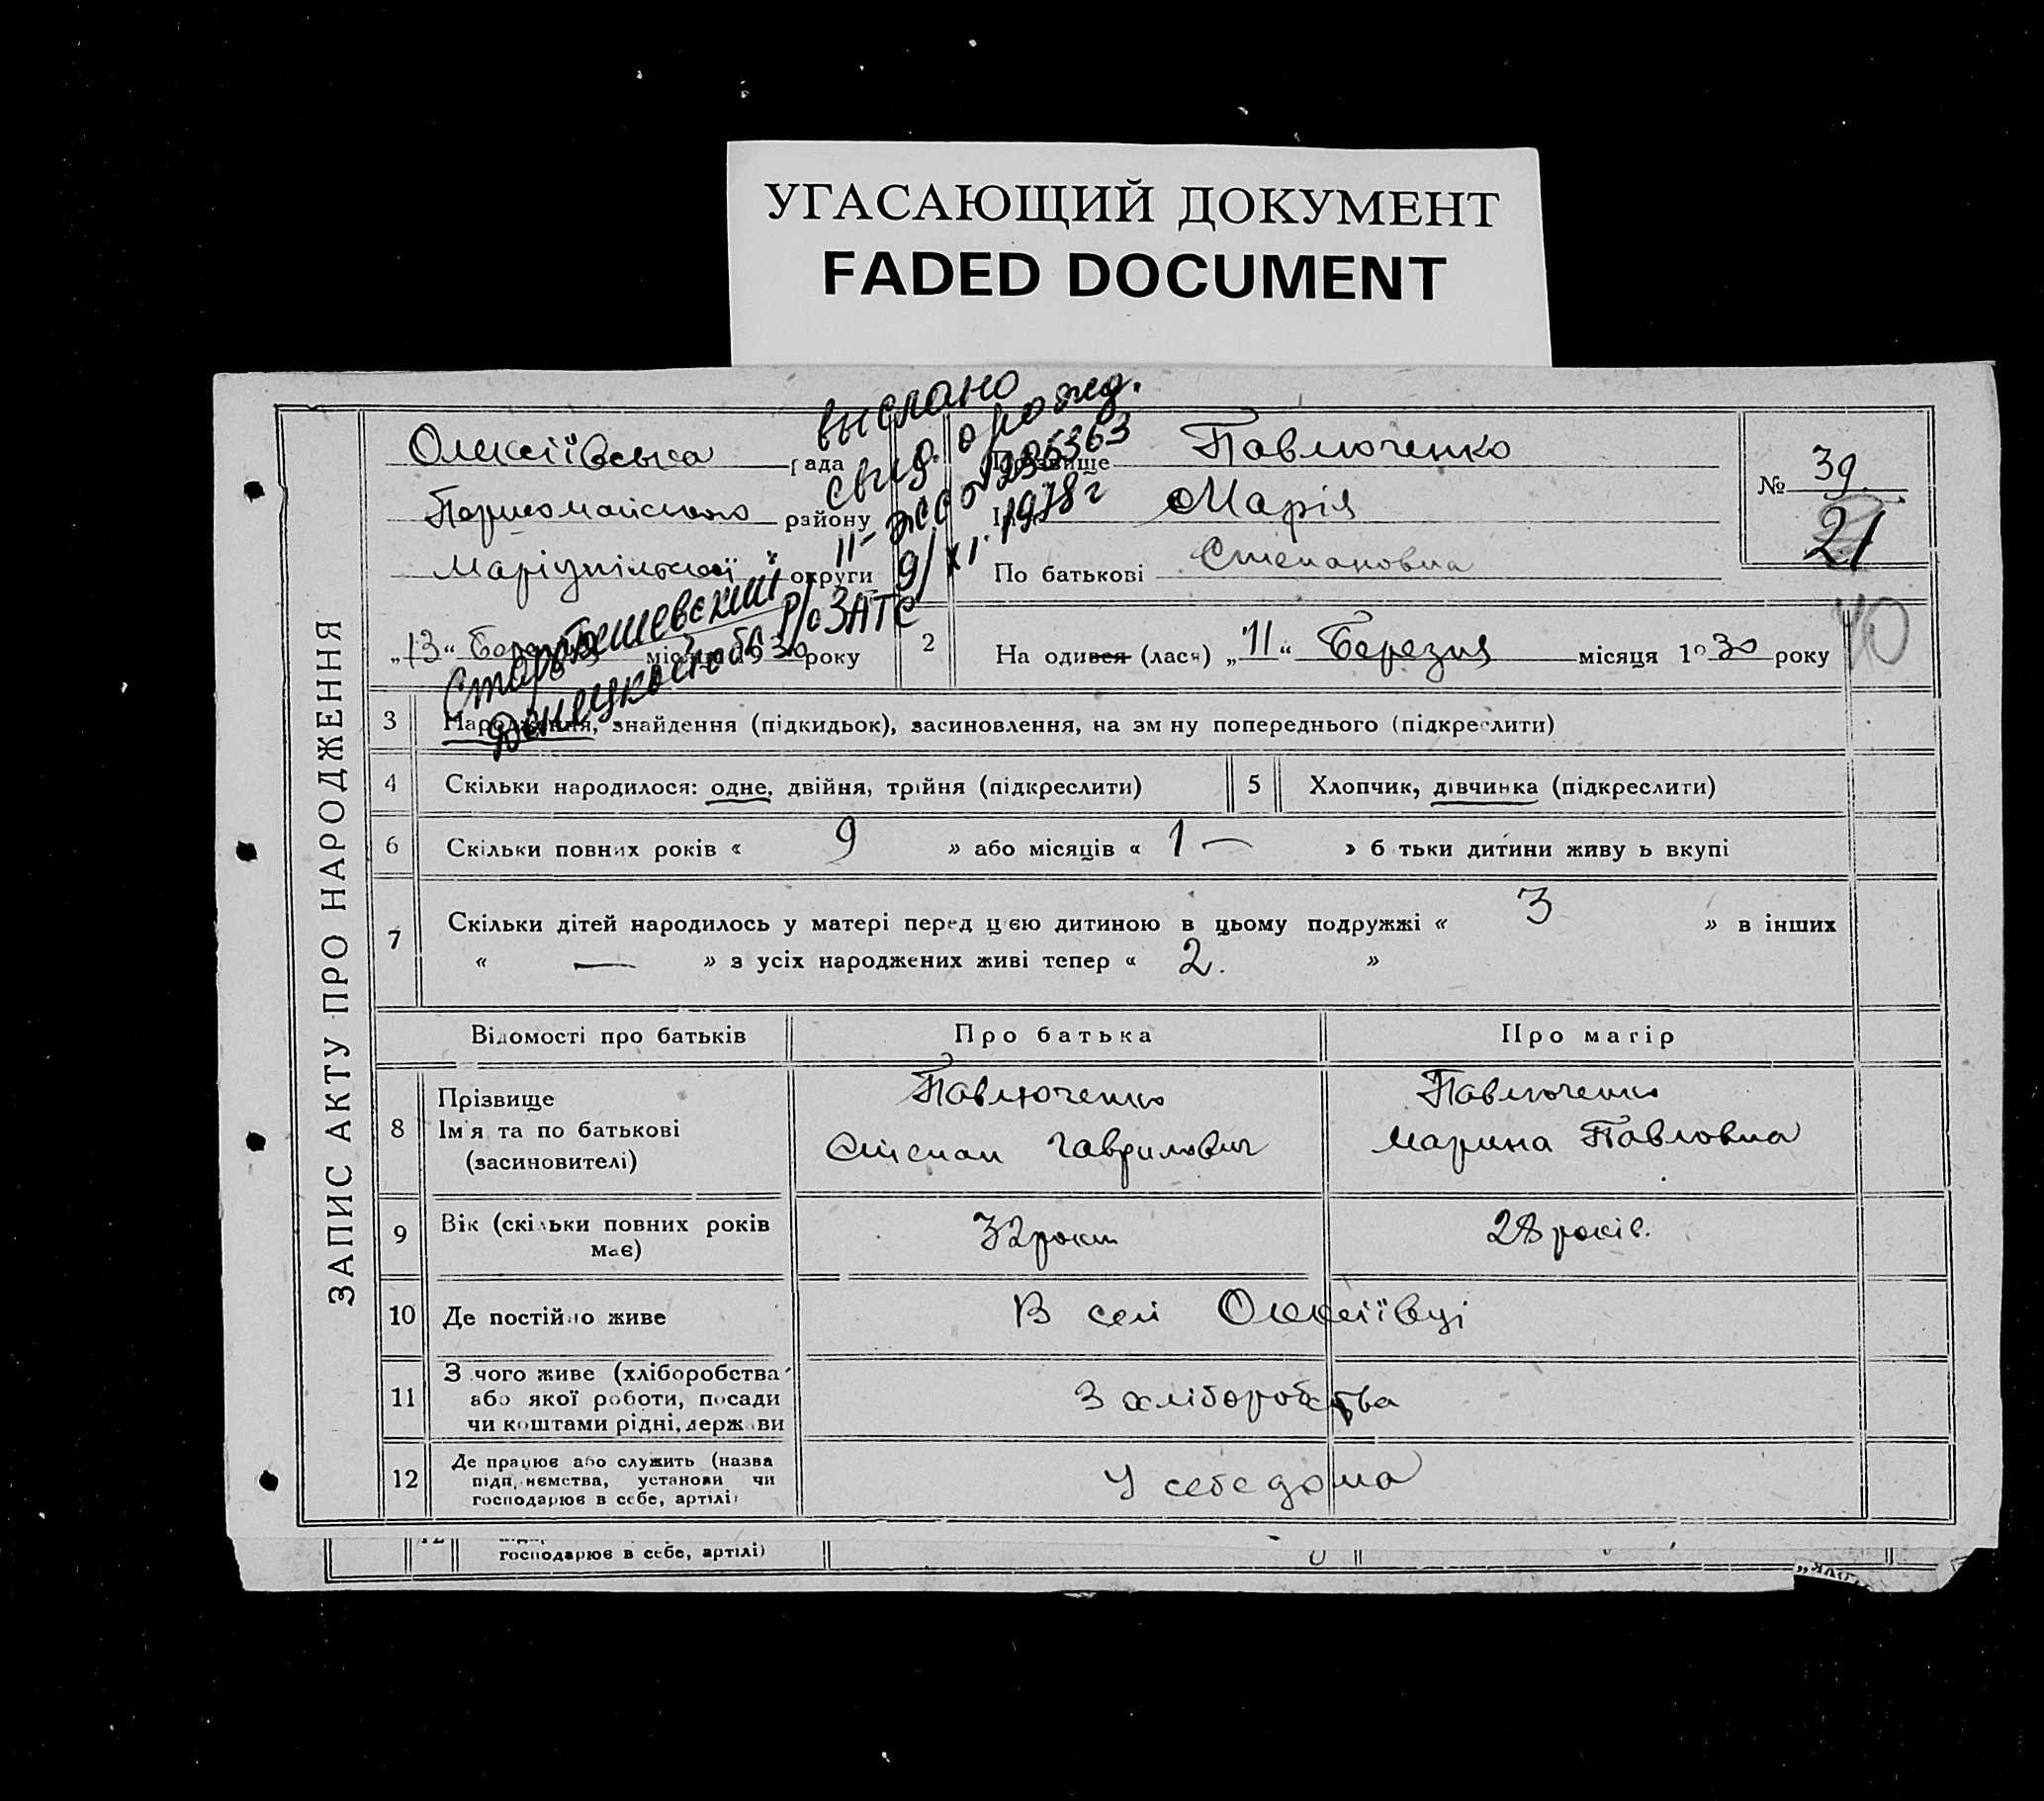 УГАСАЮЩИЙ ДОКУМЕНТ
FADED DOCUMENT
ЗАПИС АКТУ ПРО НАРОДЖЕННЯ
Олексіївська рада
району
Маріупільської округи
„13“ Березня місяця 1930 року
выслано
свид. о рожд.
9/XI. 1978 г
Старобешевский р/о ЗАГС
Донецкой обл
Прізвище Павлюченко
Ім'я Марія
По батькові Степановна
№ 39
21
40
2 На одився (лася) „11“ Березня місяця 1930 року
3 Народження, знайдення (підкидьок), засиновлення, на зм ну попереднього (підкреслити)
4 Скільки народилося: одне, двійня, трійня (підкреслити)
5 Хлопчик, дівчинка (підкреслити)
6 Скільки повних років « 9 » або місяців « 1 — » б тьки дитини живу ь вкупі
7 Скільки дітей народилось у матері перед цією дитиною в цьому подружжі « 3 » в інших
« — » з усіх народжених живі тепер « 2. »
Відомості про батьків Про батька Про матір
8 Прізвище Павлюченко Павлюченко
Ім'я та по батькові Степан Гаврилович Марина Павловна
(засиновителі)
9 Вік (скільки повних років має) 32 роки 28 років.
10 Де постійно живе В селі Олексіївці
11 З чого живе (хліборобства
або якої роботи, посади
чи коштами рідні, держави
З хліборобства
12 Де працює або служить (назва
підп, ємства, установи чи
господарює в себе, артілі)
У себе дома
господарює в себе, артілі)